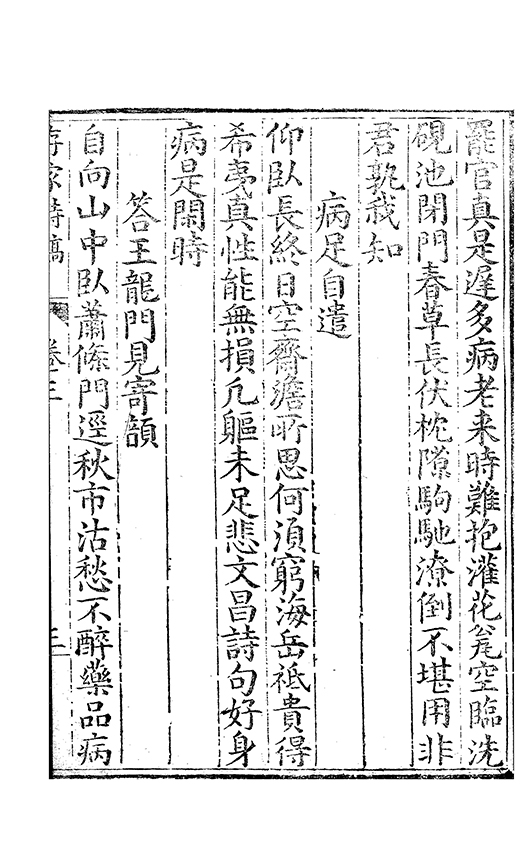 罷官真是遲多病老来時難抱灌花瓮空臨洗
硯池閉門春草長伏枕隙駒馳潦倒不堪用非
君孰我知
病足自遣
仰臥長終日空齋澹所思何須窮海岳祗貴得
希夷真性能無損凢軀未足悲文昌詩句好身
病是閒時
答王龍門見寄韻
自向山中臥蕭條門逕秋市沽愁不醉藥品病
卷三
三